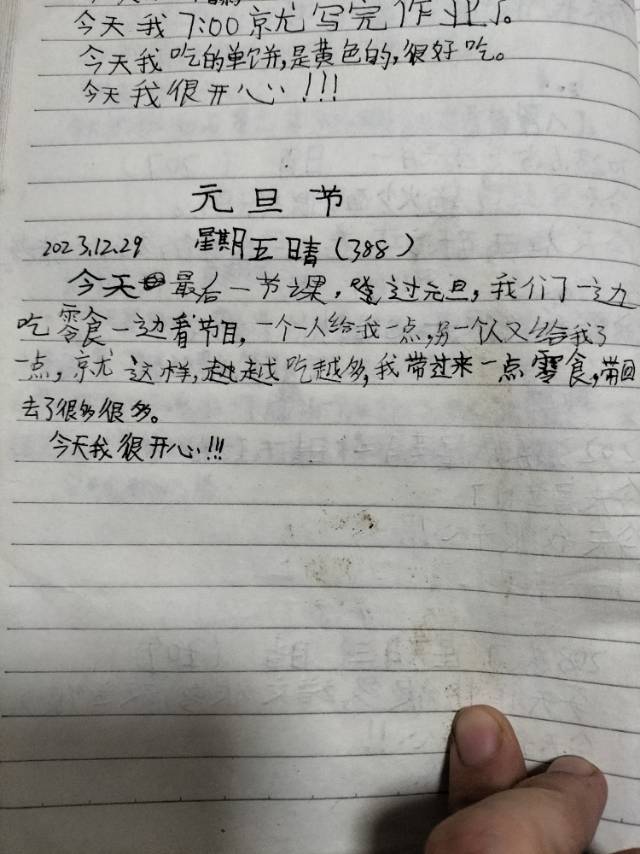 今天我7:00就写完作业了。
今天我吃的单饼,是黄色的,很好吃。
今天我很开心!!!
元旦节
2023.12.29 星期五 晴(388)
今天最后一节课,过元旦,我们了一边
吃零食一边看节目,一个人给我一点,另一个人又给我了
一点,就这样,越越吃越多,我带过来一点零食,带回
去了很多很多。
今天我很开心!!!